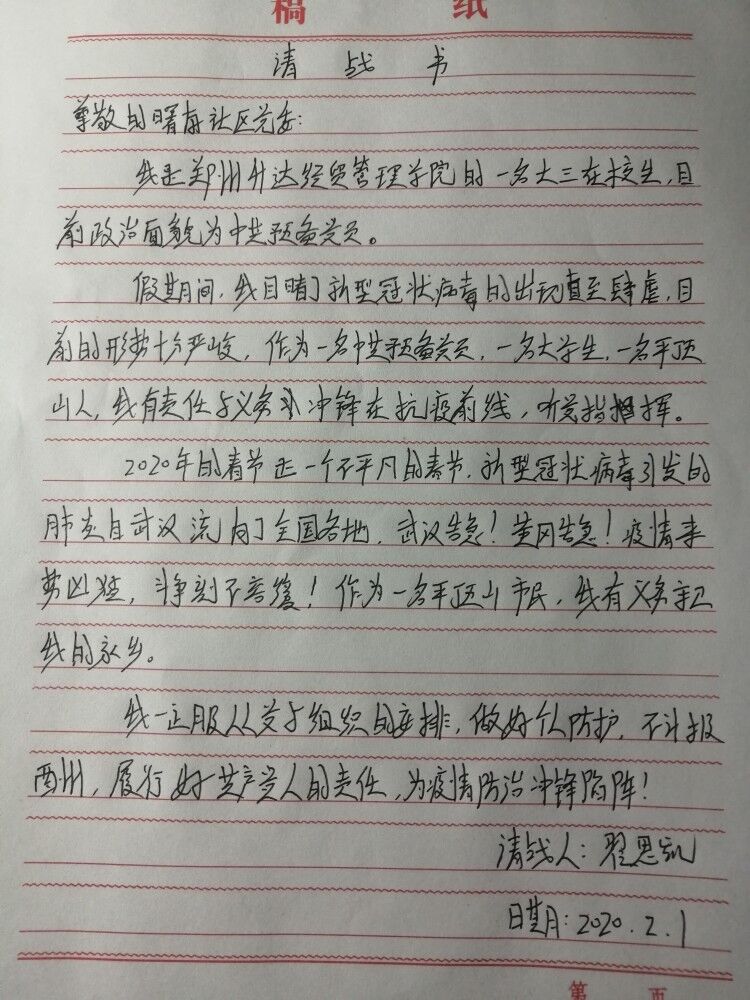 稿 纸
请战书
尊敬的曙春社区党委:
我是郑州升达经贸管理学院的一名大三在校生,目
前政治面貌为中共预备党员。
假期间,我目睹了新型冠状病毒的出现直至肆虐,目
前的形势十分严峻,作为一名中共预备党员,一名大学生,一名平顶
山人,我有责任与义务冲锋在抗疫前线,听党指挥。
2020年的春节是一个不平凡的春节,新型冠状病毒引发的
肺炎自武汉流向了全国各地,武汉告急!黄冈告急!疫情来
势凶猛,斗争刻不容缓!作为一名平顶山市民,我有义务守卫
我的家乡。
我一定服从党与组织的安排,做好个人防护,不计报
酬,履行好共产党人的责任,为疫情防治冲锋陷阵!
请战人:翟思凯
日期:2020.2.1
第 页